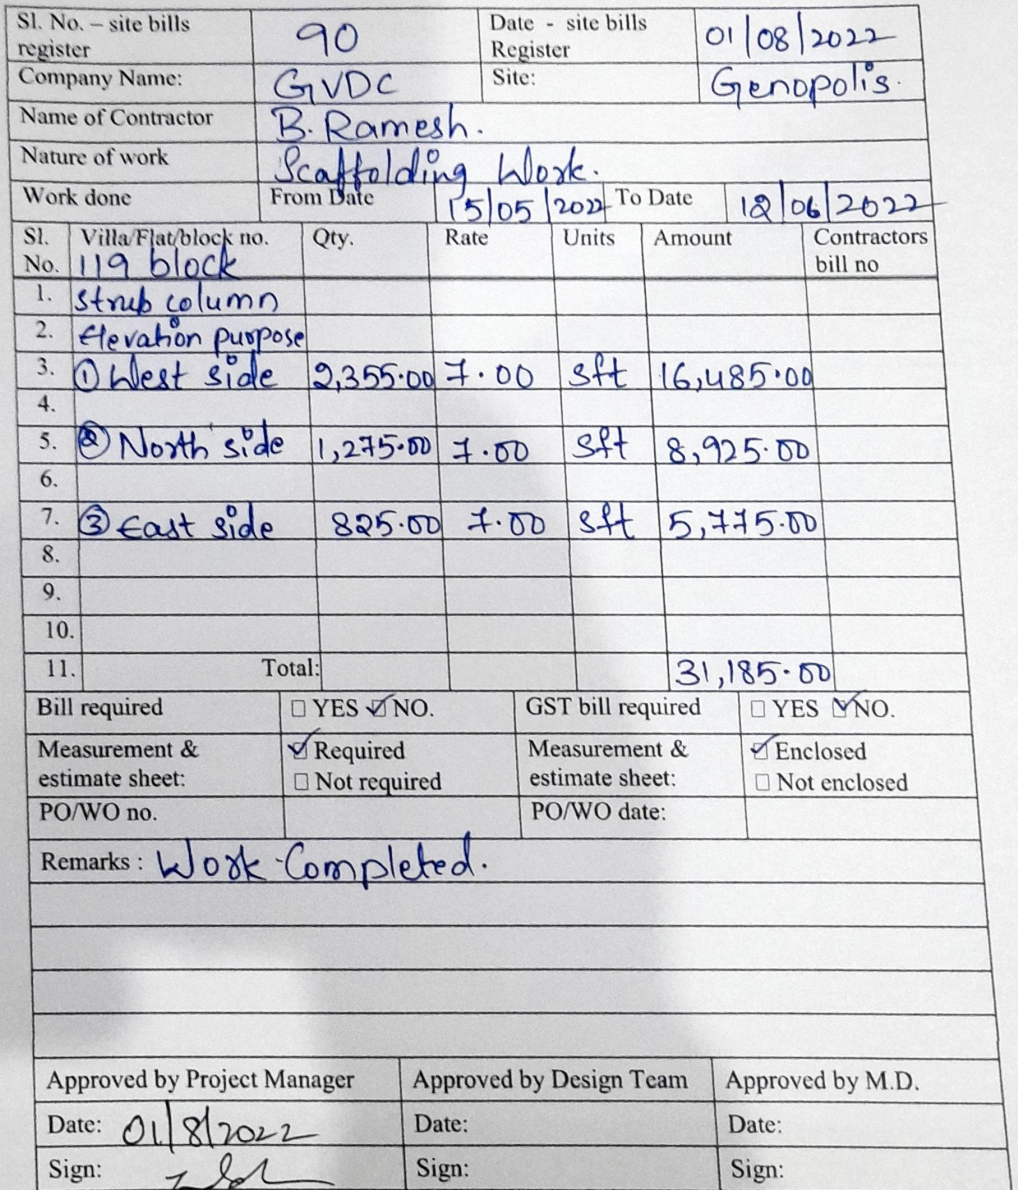 Sl. No. – site bills register 90 Date - site bills Register 01/08/2022
Company Name: GVDC Site: Genopolis.
Name of Contractor B. Ramesh.
Nature of work Scaffolding Work.
Work done From Date 15/05/2022 To Date 12/06/2022
Sl. No. Villa/Flat/block no. 119 block Qty. Rate Units Amount Contractors bill no
1. Strub column
2. Elevation purpose
3. ① West side 2,355.00 7.00 sft 16,485.00
4.
5. ② North side 1,275.00 7.00 sft 8,925.00
6.
7. ③ East side 825.00 7.00 sft 5,775.00
8.
9.
10.
11. Total: 31,185.00
Bill required ☐ YES ☑ NO. GST bill required ☐ YES ☑ NO.
Measurement & estimate sheet: ☑ Required ☐ Not required Measurement & estimate sheet: ☑ Enclosed ☐ Not enclosed
PO/WO no. PO/WO date:
Remarks : Work Completed.
Approved by Project Manager Approved by Design Team Approved by M.D.
Date: 01/8/2022 Date: Date:
Sign: Sign: Sign: